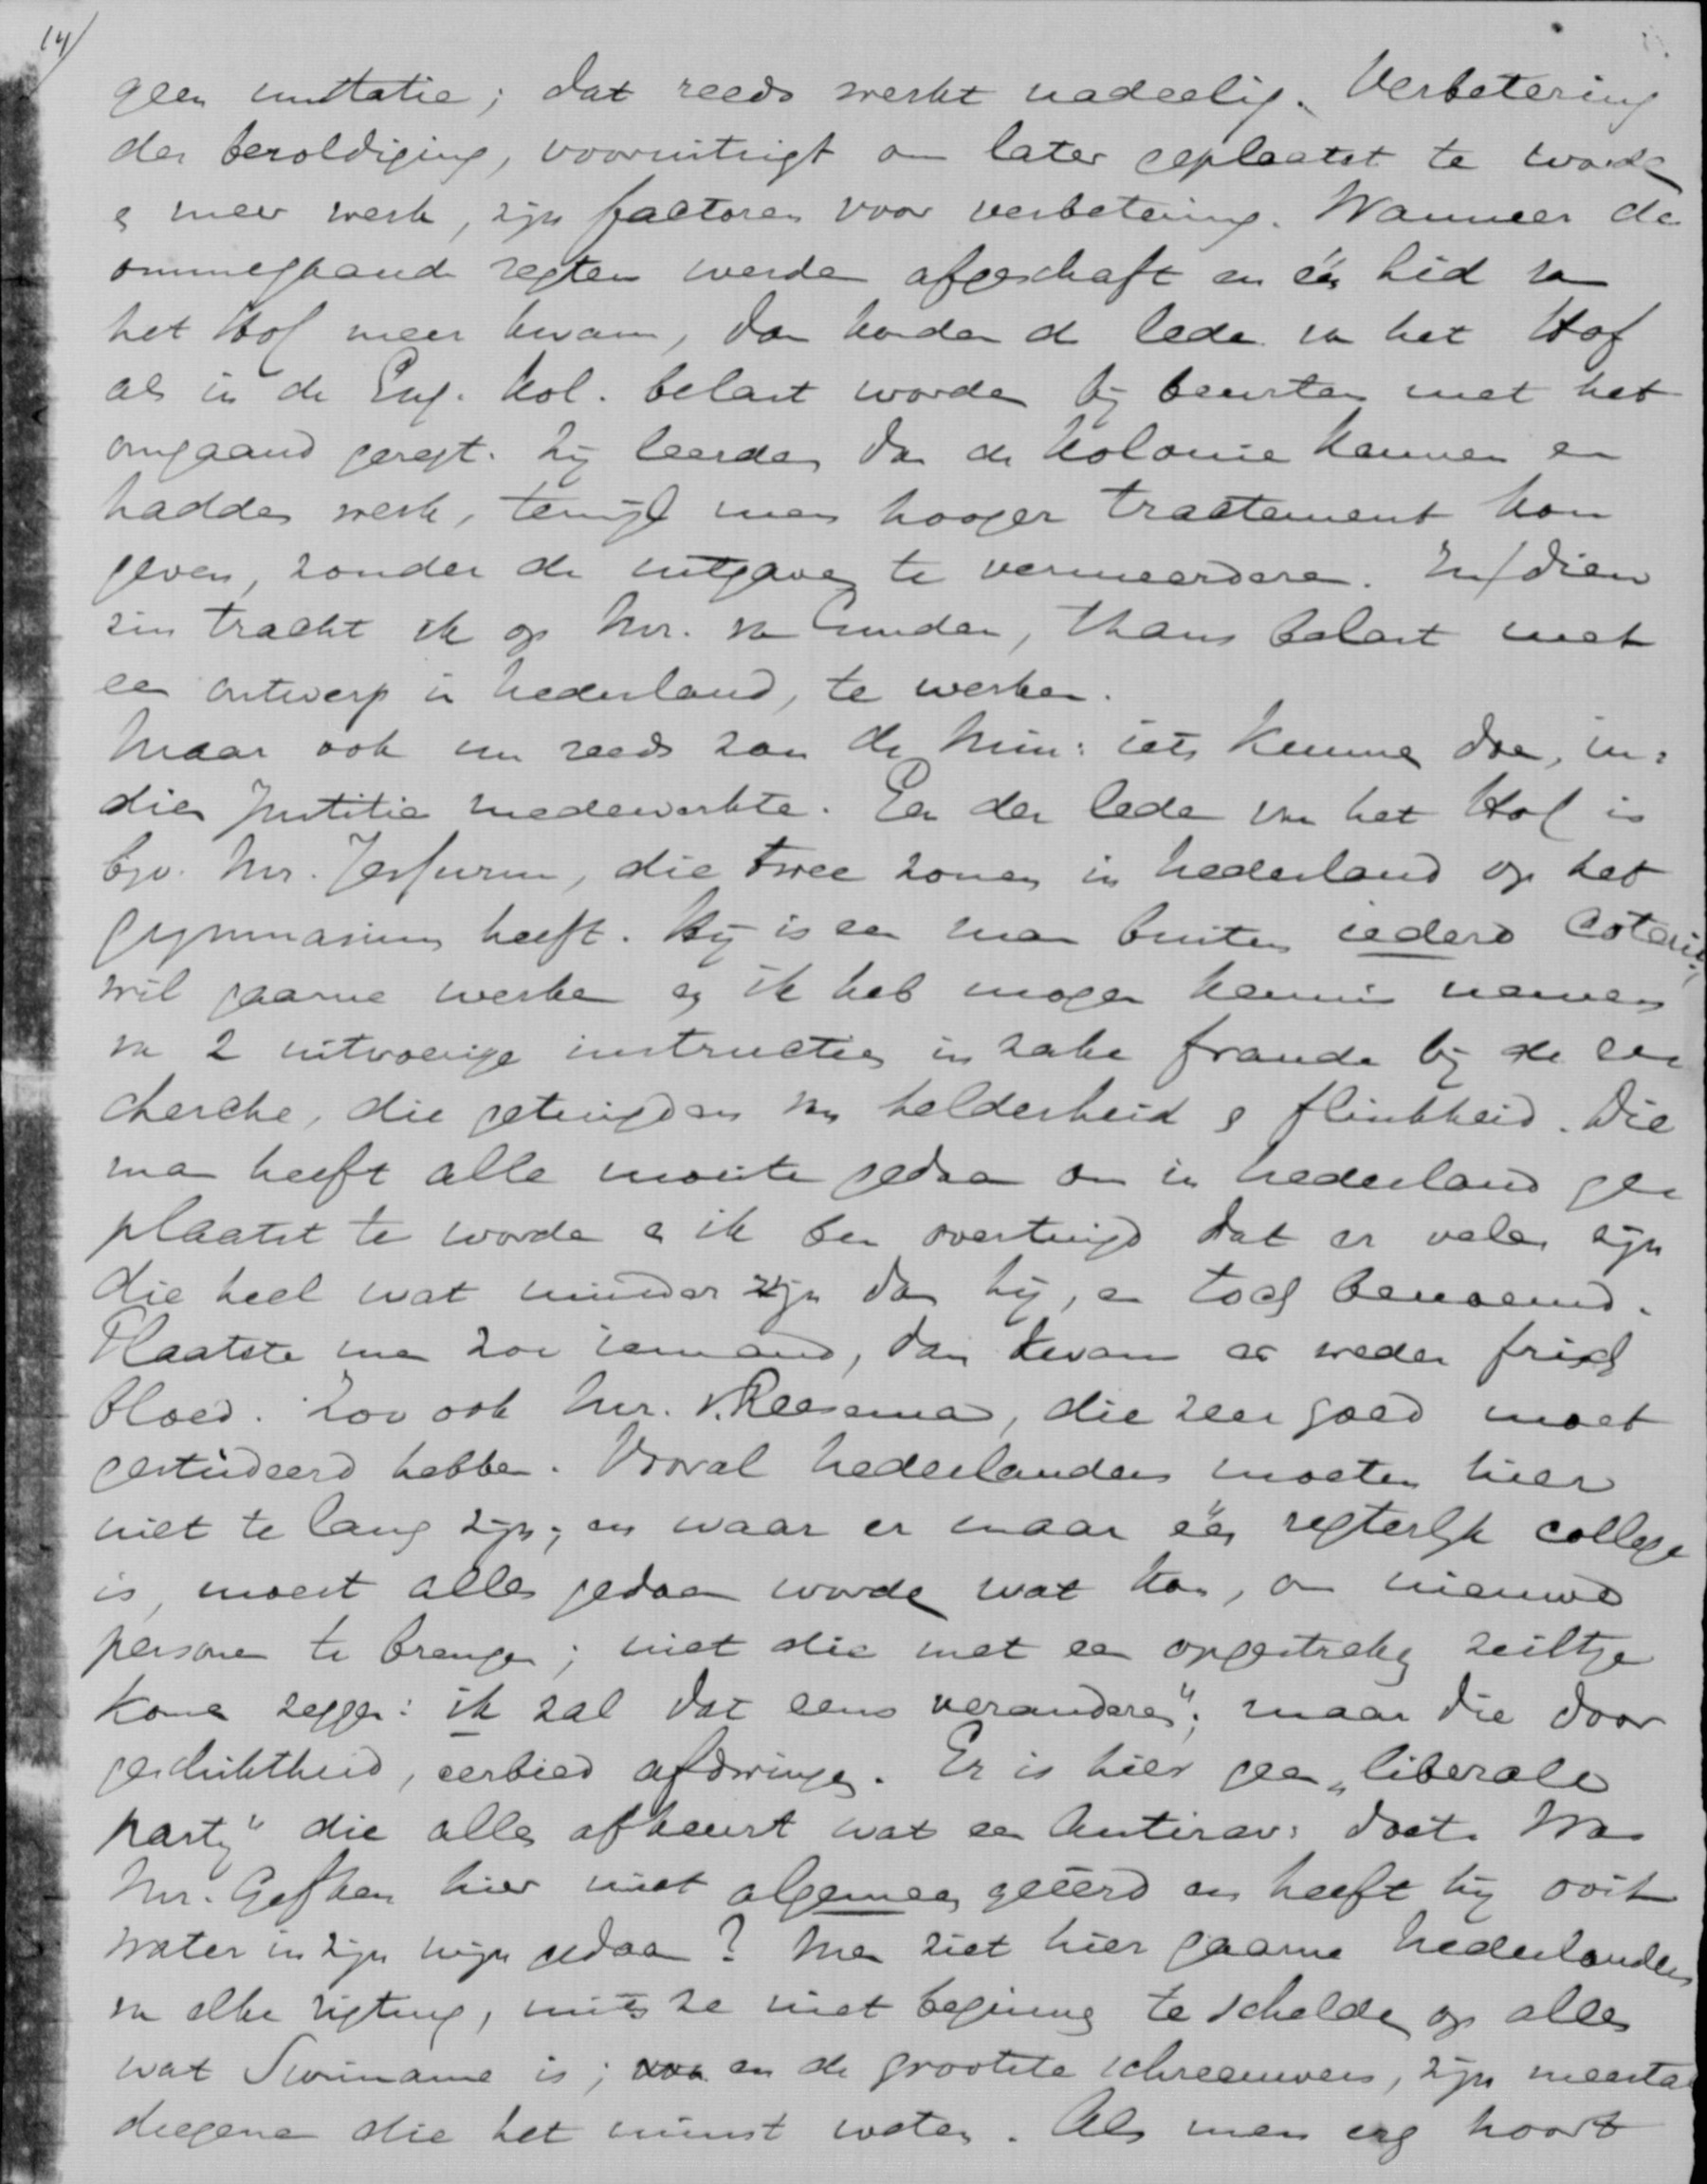 14/
geen mutatie; dat reeds werkt nadeelig. Verbetering
der bezoldiging, vooruitzigt om later geplaatst te worde
& meer werk, zijn factoren voor verbetering. Wanneer de
ommegaand regten werden afgeschaft en één lid van
het Hof meer kwam, dan konden de lede van het Hof
als in de Eng. Kol. belast worden bij beurten met het
omgaand geregt. Zij leerden dan de Kolonie kennen en
hadden werk, terwijl men hooger tractement kon
geven, zonder de uitgaven te vermeerderen. In dien
zin tracht ik op Mr. van Emden, thans belast met
een ontwerp in Nederland, te werken.
Maar ook nu reeds zou de Min: iets kunne doen, in=
dien Justitie medewerkte. Een der lede van het Hof is
bijv. Mr. Jesurun, die twee zonen in Nederland op het
gymnasium heeft. Hij is een man buiten iedere coterie,
wil gaarne werken en ik heb mogen kennis nemen
van 2 uitvoerige instructies in zake fraude bij de re
cherche, die getuigden van helderheid & flinkheid. Die
man heeft alle moeite gedaan om in Nederland ge
plaatst te worde & ik ben overtuigd dat er velen zijn
die heel wat minder zijn dan hij, en toch benoemd.
Plaatste men zoo iemand, dan kwam er weder frisch
bloed. Zoo ook Mr. v. Reesema, die zeer goed moet
gestudeerd hebben. Vooral Nederlanders moeten hier
niet te lang zijn; en waar er maar één regterlijk college
is, moest alles gedaan worden wat kan, om nieuwe
personen te brengen; niet die met een opgestreken zeiltje
komen zeggen: ik zal dat eens veranderen"; maar die door
geschiktheid, eerbied afdwingen. Er is hier geen „liberale
partij" die alles afkeurt wat een Antirev: doet. Was
Mr. Gefken hier niet algemeen geëerd en heeft hij ooit
water in zijn wijn gedaan? Men ziet hier gaarne Nederlanders
van elke rigting, mits ze niet beginnen te schelden op alles
wat Suriname is; en de grootste schreeuwers, zijn meestal
diegene die het minst weten. Als men erg hoort